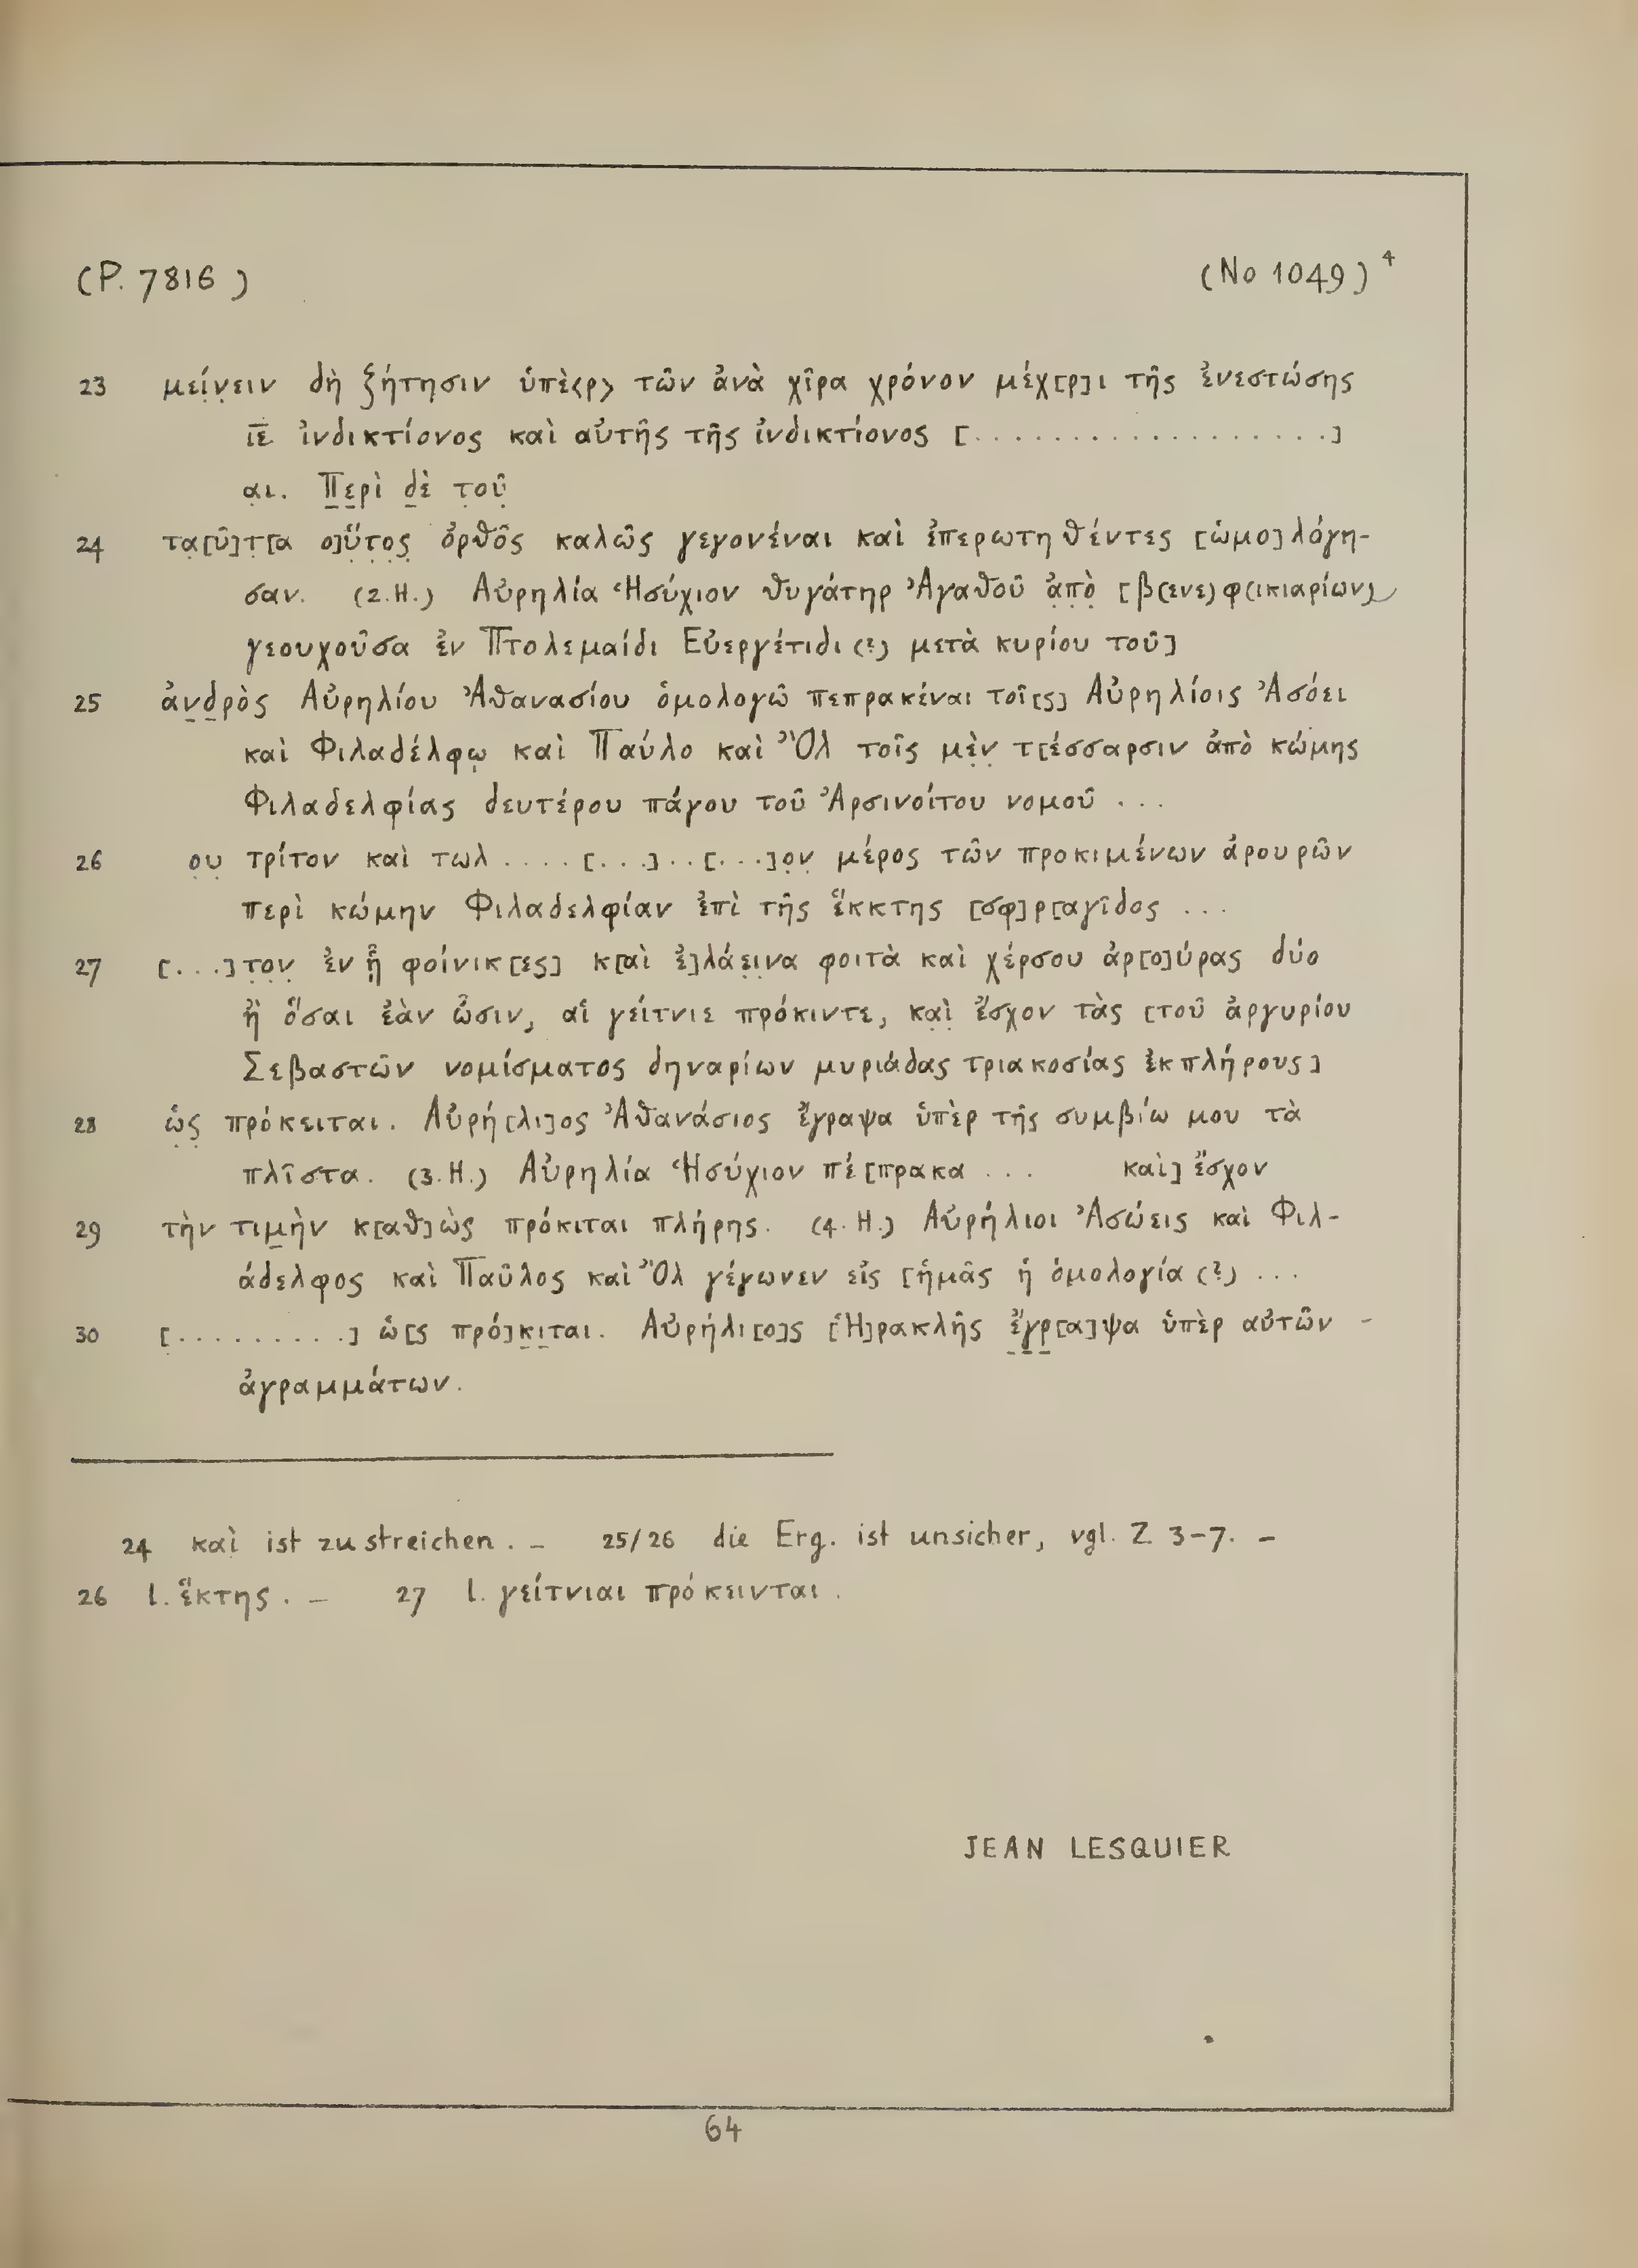 (P. 7816) (No 1049) 4
23 μείν̣ειν δὴ ζήτησιν ὑπὲ<ρ> τῶν ἀνὰ χῖρα χρόνον μέχ[ρ]ι τῆς ἐνεστώσης
ιε̅ ἰνδικτίονος καὶ αὐτῆς τῆς ἰνδικτίονος [. . . . . . . . . . . . . . . . . .]
α̣ι. Περὶ δὲ τ̣οῦ̣
24 τα̣[ῦ]τ̣[α ο]ὕ̣τ̣ο̣ς̣ ὀρθο͂ς καλῶς γεγονέναι καὶ ἐπερωτηθέντες [ὡμο]λόγη-
σαν. (2.H.) Αὐρηλία Ἡσύχιον θυγάτηρ Ἀγαθοῦ ἀ̣π̣ὸ̣ [β(ενε)φ(ικιαρίων)
γεουχοῦσα ἐν Πτολεμαίδι Εὐεργέτιδι (?) μετὰ κυρίου τοῦ]
25 ἀνδρὸς Αὐρηλίου Ἀθανασίου ὁμολογῶ πεπρακέναι τοῖ[ς] Αὐρηλίοις Ἀσόει
καὶ Φιλαδέλφῳ καὶ Παύλο καὶ Ὂλ τοῖς μὲ̣ν̣ τ[έσσαρσιν ἀπὸ κώμης
Φιλαδελφίας δευτέρου πάγου τοῦ Ἀρσινοίτου νομοῦ . . .
26 ο̣υ̣ τρίτον καὶ τωλ . . . . [. . .] . . [. . .]ο̣ν̣ μέρος τῶν προκιμένων ἀρουρῶν
περὶ κώμην Φιλαδελφίαν ἐπὶ τῆς ἕκκτης [σφ]ρ[αγῖδος . . .
27 [. . .]τ̣ο̣ν̣ ἐν ᾗ φοίνικ[ες] κ[αὶ ἐ]λάε̣ι̣να φοιτὰ καὶ χέρσου ἀρ[ο]ύρας δύο
ἢ ὅσαι ἐὰν ὦσιν, αἱ γείτνιε πρόκιντε, κα̣ὶ̣ ἔσχον τὰς [τοῦ ἀργυρίου
Σεβαστῶν νομίσματος δηναρίων μυριάδας τριακοσίας ἐκπλήρους]
28 ὡ̣ς̣ πρόκειται. Αὐρή[λι]ος Ἀθανάσιος ἔγραψα ὑπὲρ τῆς συμβίω μου τὰ
πλῖστα. (3.H.) Αὐρηλία Ἡσύχιον πέ[πρακα . . . καὶ] ἔσχον
29 τὴν τιμὴν κ[αθ]ὼς πρόκιται πλήρης. (4.H.) Αὐρήλιοι Ἀσώεις καὶ Φιλ-
άδελφος καὶ Παῦλος καὶ Ὂλ γέγωνεν εἰς [ἡμᾶς ἡ ὁμολογία (?) . . .
30 [. . . . . . . . .] ὡ[ς πρό]κιται. Αὐρήλι[ο]ς [Ἡ]ρακλῆς ἔγρ[α]ψα ὑπὲρ αὐτῶν -
ἀγραμμάτων.
24 καὶ ist zu streichen. – 25/26 die Erg. ist unsicher, vgl. Z. 3-7. –
26 l. ἕκτης. – 27 l. γείτνιαι πρόκεινται.
JEAN LESQUIER
64